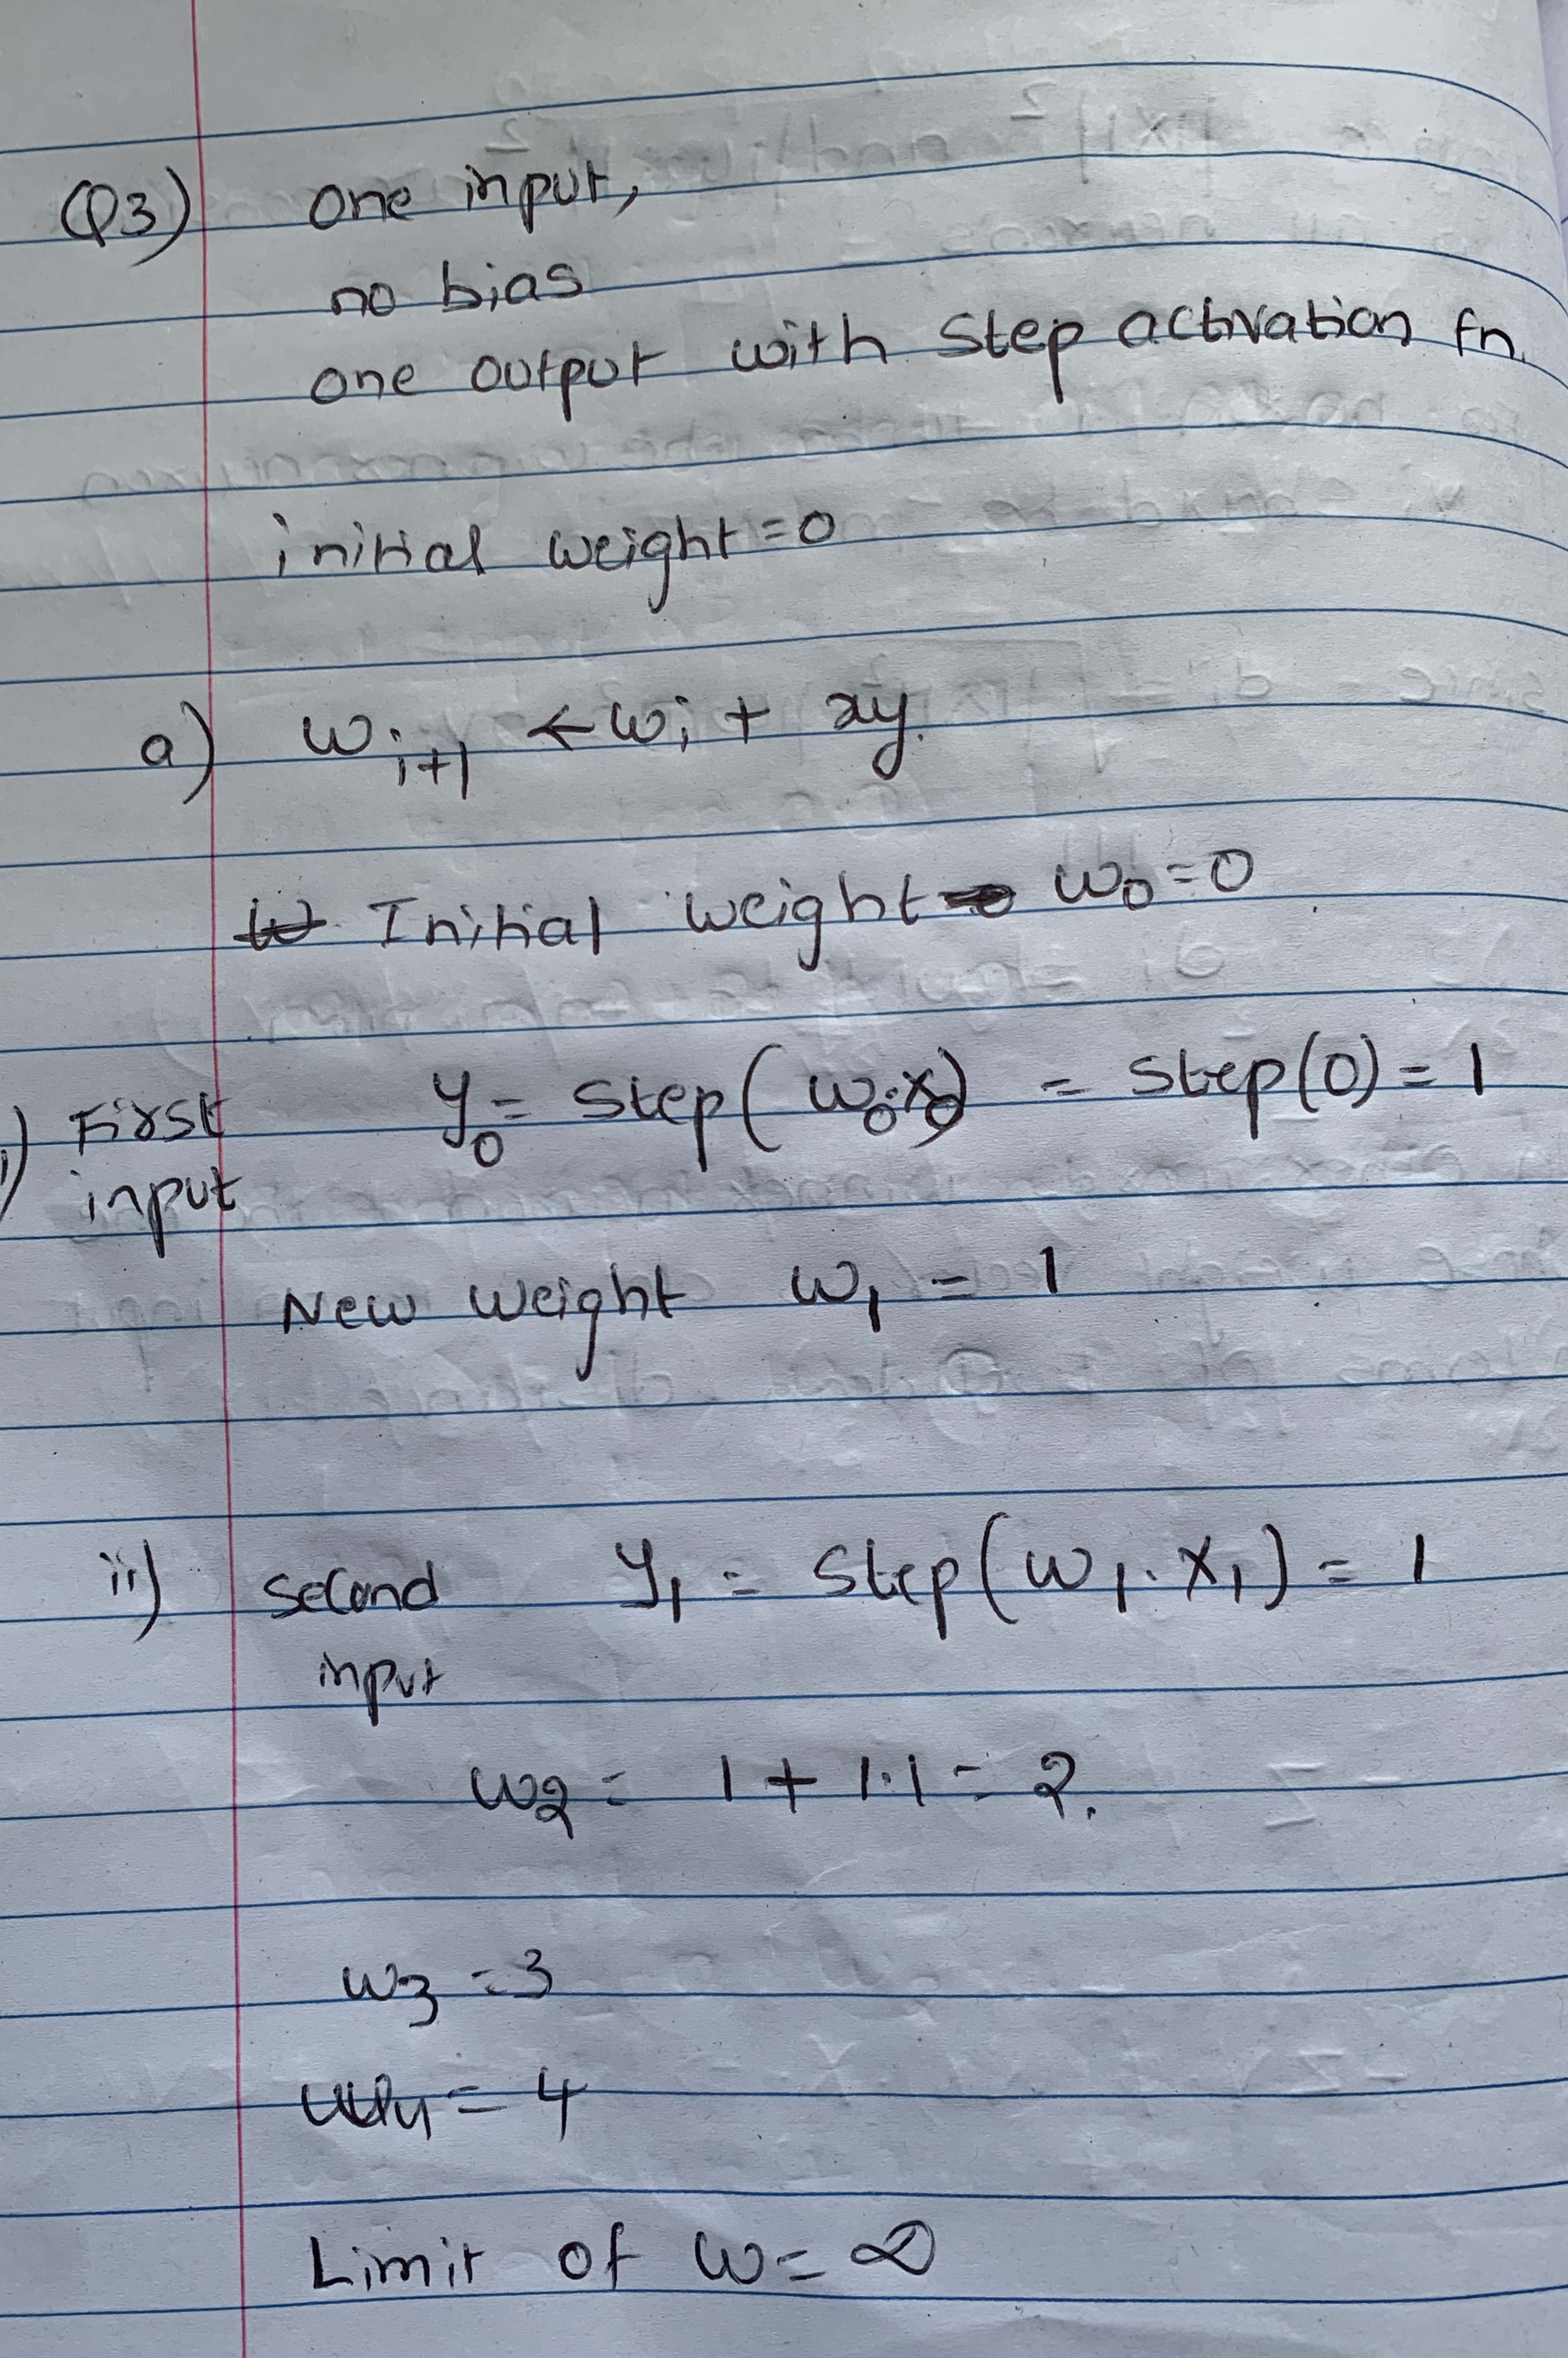 Q3) one input,
no bias
one output with step activation fn.
initial weight = 0
a) w i+1 ← wi + xy.
Initial weight w0 = 0
i) First input y0 = step(w0.x0) = step(0) = 1
New weight w1 = 1
ii) second input y1 = step(w1.x1) = 1
w2 = 1 + 1.1 = 2.
w3 = 3
w4 = 4
Limit of w = ∞